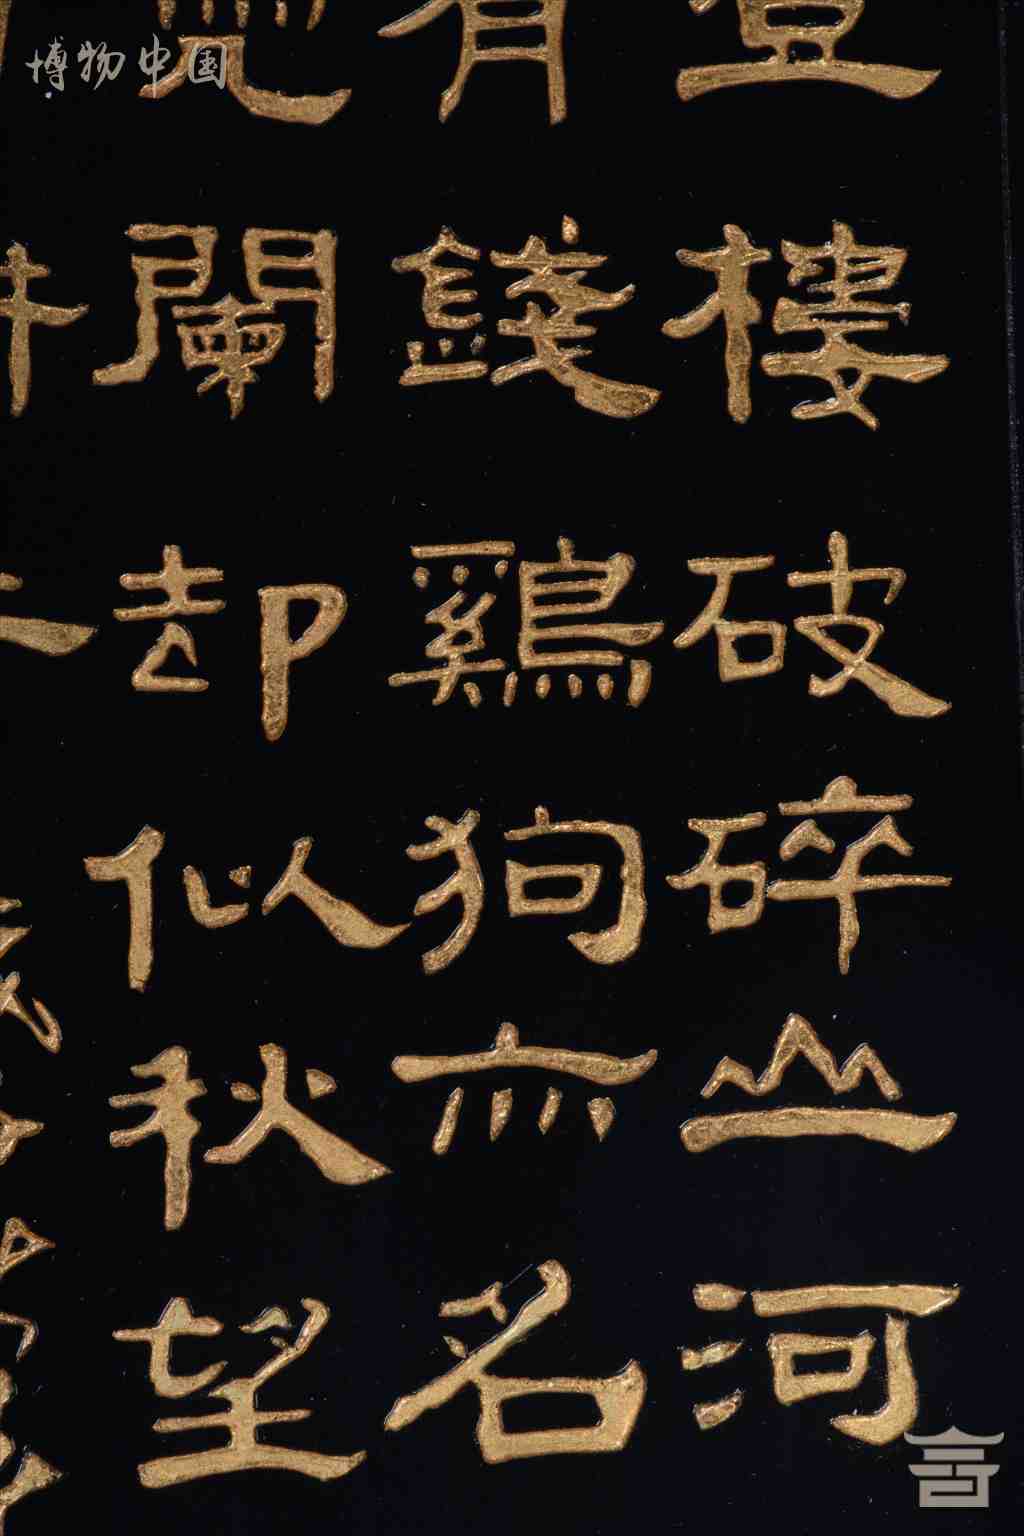 博物中国
登樓破碎山河
有錢鷄狗亦名
闌却似秋望